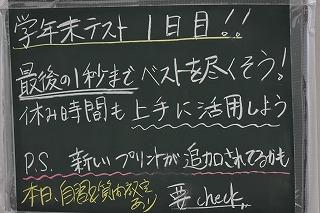 学年末テスト 1日目!!
最後の1秒まで ベストを尽くそう!
休み時間も 上手に活用しよう
P.S. 新しいプリントが追加されてるかも
本日、自習&質問教室あり
要 check